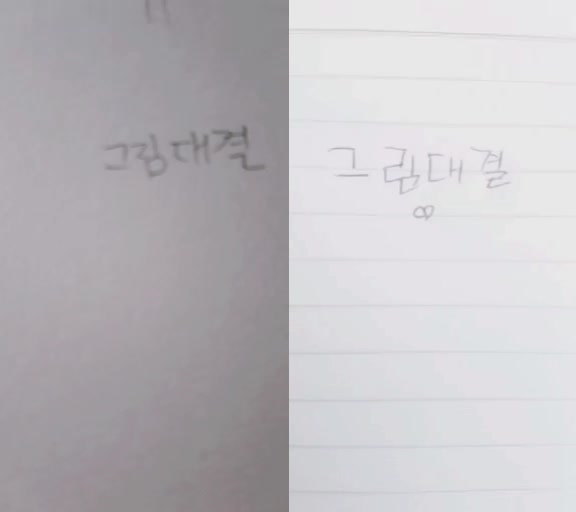 그림대결
그림대결